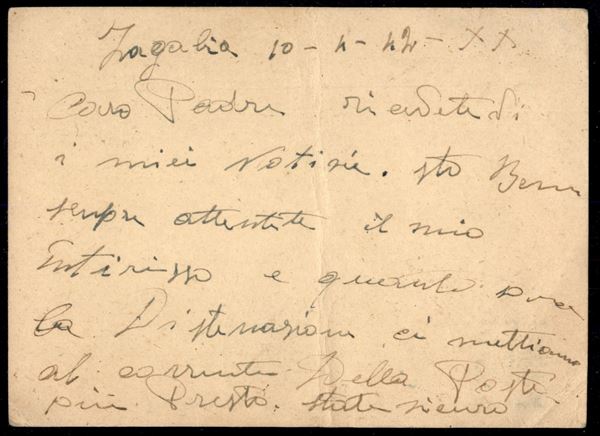 Zagabia 10-4-42-XX
Caro Padre ricevete di
i miei Notisie. sto Bene
sempre attentete il mio
Intirisso e quanto sara
la Distenazione ci mettiamo
al corrente Della Poste
piu Presto. state sicuro